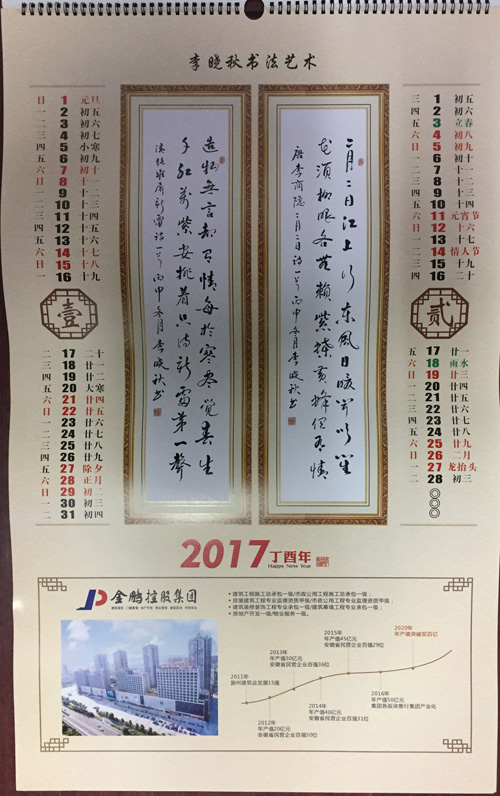 李晓秋书法艺术
日 1 元旦
一 2 初五
二 3 初六
三 4 初七
四 5 小寒
五 6 初九
六 7 初十
日 8 十一
一 9 十二
二 10 十三
三 11 十四
四 12 十五
五 13 十六
六 14 十七
日 15 十八
一 16 十九
壹
二 17 二十
三 18 廿一
四 19 廿二
五 20 大寒
六 21 廿四
日 22 廿五
一 23 廿六
二 24 廿七
三 25 廿八
四 26 廿九
五 27 除夕
六 28 正月
日 29 初二
一 30 初三
二 31 初四
二月二日江上行东风日暖闻吹笙
花须柳眼各无赖紫蝶黄蜂俱有情
唐李商隐二月二日诗一首丙申冬月李晓秋书
造物无言却有情每于寒尽觉春生
千红万紫安排着只待新雷第一声
清张维屏新雷诗一首丙申冬月李晓秋书
三 1 初五
四 2 初六
五 3 立春
六 4 初八
日 5 初九
一 6 初十
二 7 十一
三 8 十二
四 9 十三
五 10 十四
六 11 元宵节
日 12 十六
一 13 十七
二 14 情人节
三 15 十九
四 16 二十
贰
五 17 廿一
六 18 雨水
日 19 廿三
一 20 廿四
二 21 廿五
三 22 廿六
四 23 廿七
五 24 廿八
六 25 廿九
日 26 二月
一 27 龙抬头
二 28 初三
2017丁酉年
Happy New Year
金鹏控股集团
•建筑工程施工总承包一级/市政公用工程施工总承包一级;
•房屋建筑工程专业监理资质甲级/市政公用工程专业监理资质甲级;
•建筑装修装饰工程专业承包一级/建筑幕墙工程专业承包一级;
•房地产开发一级/物业服务一级。
2011年
滁州建筑业发展15强
2012年
年产值20亿元
安徽省民营企业百强50位
2013年
年产值30亿元
安徽省民营企业百强36位
2014年
年产值40亿元
安徽省民营企业百强31位
2015年
年产值45亿元
安徽省民营企业百强29位
2016年
年产值50亿元
集团各板块推行集团产业化
2020年
年产值突破双百亿